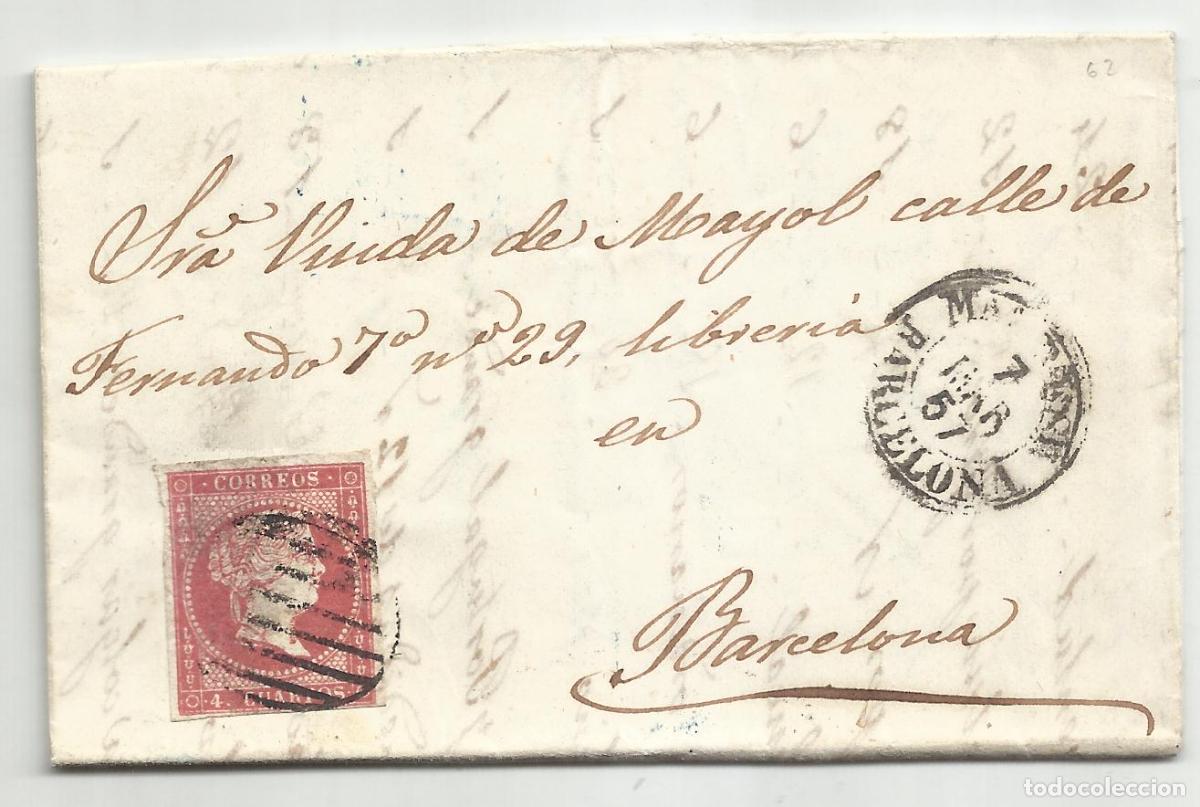 62
Sra Viuda de Mayol calle de
Fernando 7º nº 29, libreria
en
Barcelona
BARCELONA
7
MAR
57
CORREOS
4. CUARTOS
todocoleccion